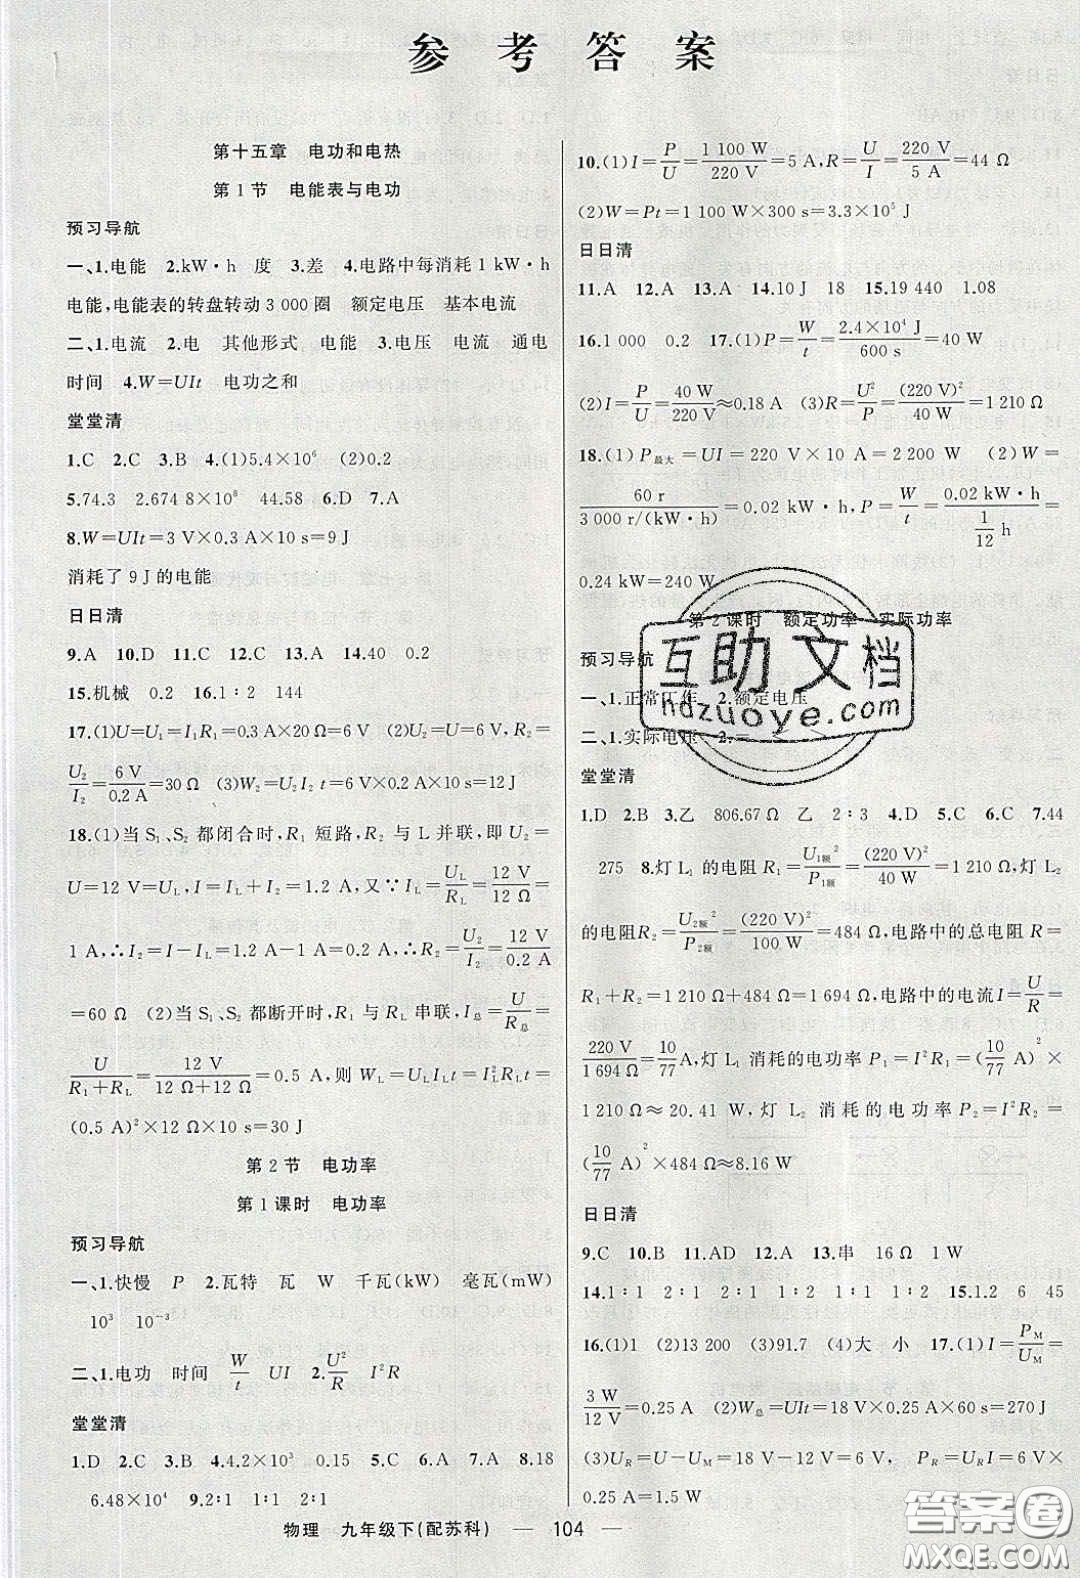 参考答案
第十五章 电功和电热
第1节 电能表与电功
预习导航
一、1.电能 2.kW·h 度 3.差 4.电路中每消耗1 kW·h
电能,电能表的转盘转动3 000圈 额定电压 基本电流
二、1.电流 2.电 其他形式 电能 3.电压 电流 通电
时间 4.W=UIt 电功之和
堂堂清
1.C 2.C 3.B 4.(1)5.4×10⁶ (2)0.2
5.74.3 2.674 8×10⁸ 44.58 6.D 7.A
8.W=UIt=3 V×0.3 A×10 s=9 J
消耗了9 J的电能
日日清
9.A 10.D 11.C 12.C 13.A 14.40 0.2
15.机械 0.2 16.1∶2 144
17.(1)U=U₁=I₁R₁=0.3 A×20 Ω=6 V (2)U₂=U=6 V,R₂=
U₂/I₂=6 V/0.2 A=30 Ω (3)W₂=U₂I₂t=6 V×0.2 A×10 s=12 J
18.(1)当S₁、S₂都闭合时,R₁短路,R₂与L并联,即U₂=
U=12 V=U_L,I=I_L+I₂=1.2 A,又∵I_L=U_L/R_L=12 V/12 Ω=
1 A,∴I₂=I-I_L=1.2 A-1 A=0.2 A,∴R₂=U₂/I₂=12 V/0.2 A
=60 Ω (2)当S₁、S₂都断开时,R₁与R_L串联,I总=U/R总=
U/(R₁+R_L)=12 V/(12 Ω+12 Ω)=0.5 A,则W_L=U_LI_Lt=I_L²R_Lt=
(0.5 A)²×12 Ω×10 s=30 J
第2节 电功率
第1课时 电功率
预习导航
一、1.快慢 P 2.瓦特 瓦 W 千瓦(kW) 毫瓦(mW)
10³ 10⁻³
二、1.电功 时间 W/t UI 2.U²/R I²R
堂堂清
1.D 2.C 3.C 4.4.2×10³ 0.15 5.C 6.A 7.A 8.18
6.48×10⁴ 9.2∶1 1∶1 2∶1
10.(1)I=P/U=1 100 W/220 V=5 A,R=U/I=220 V/5 A=44 Ω
(2)W=Pt=1 100 W×300 s=3.3×10⁵ J
日日清
11.A 12.A 13.A 14.10 J 18 15.19 440 1.08
16.1 000 0.2 17.(1)P=W/t=2.4×10⁴ J/600 s=40 W
(2)I=P/U=40 W/220 V≈0.18 A (3)R=U²/P=(220 V)²/40 W=1 210 Ω
18.(1)P最大=UI=220 V×10 A=2 200 W (2)W=
60 r/3 000 r/(kW·h)=0.02 kW·h,P=W/t=0.02 kW·h/(1/12 h)=
0.24 kW=240 W
第2课时 额定功率 实际功率
预习导航
一、1.正常工作 2.额定电压
二、1.实际电压 2.=
堂堂清
1.D 2.B 3.乙 806.67 Ω 乙 2∶3 4.D 5.C 6.C 7.44
275 8.灯L₁的电阻R₁=U₁额²/P₁额=(220 V)²/40 W=1 210 Ω,灯L₂
的电阻R₂=U₂额²/P₂额=(220 V)²/100 W=484 Ω,电路中的总电阻R=
R₁+R₂=1 210 Ω+484 Ω=1 694 Ω,电路中的电流I=U/R=
220 V/1 694 Ω=10/77 A,灯L₁消耗的电功率P₁=I²R₁=(10/77 A)²×
1 210 Ω≈20.41 W,灯L₂消耗的电功率P₂=I²R₂=
(10/77 A)²×484 Ω≈8.16 W
日日清
9.C 10.B 11.AD 12.A 13.串 16 Ω 1 W
14.1∶1 2∶1 2∶1 1∶1 1∶2 1∶2 15.1.2 6 45
16.(1)1 (2)13 200 (3)91.7 (4)大 小 17.(1)I=P_M/U_M=
3 W/12 V=0.25 A (2)W总=UIt=18 V×0.25 A×60 s=270 J
(3)U_R=U-U_M=18 V-12 V=6 V, P_R=U_RI=6 V×
0.25 A=1.5 W
物理 九年级下(配苏科) — 104 —
互助文档
hdzuoye.com
答案圈
MXQE.COM